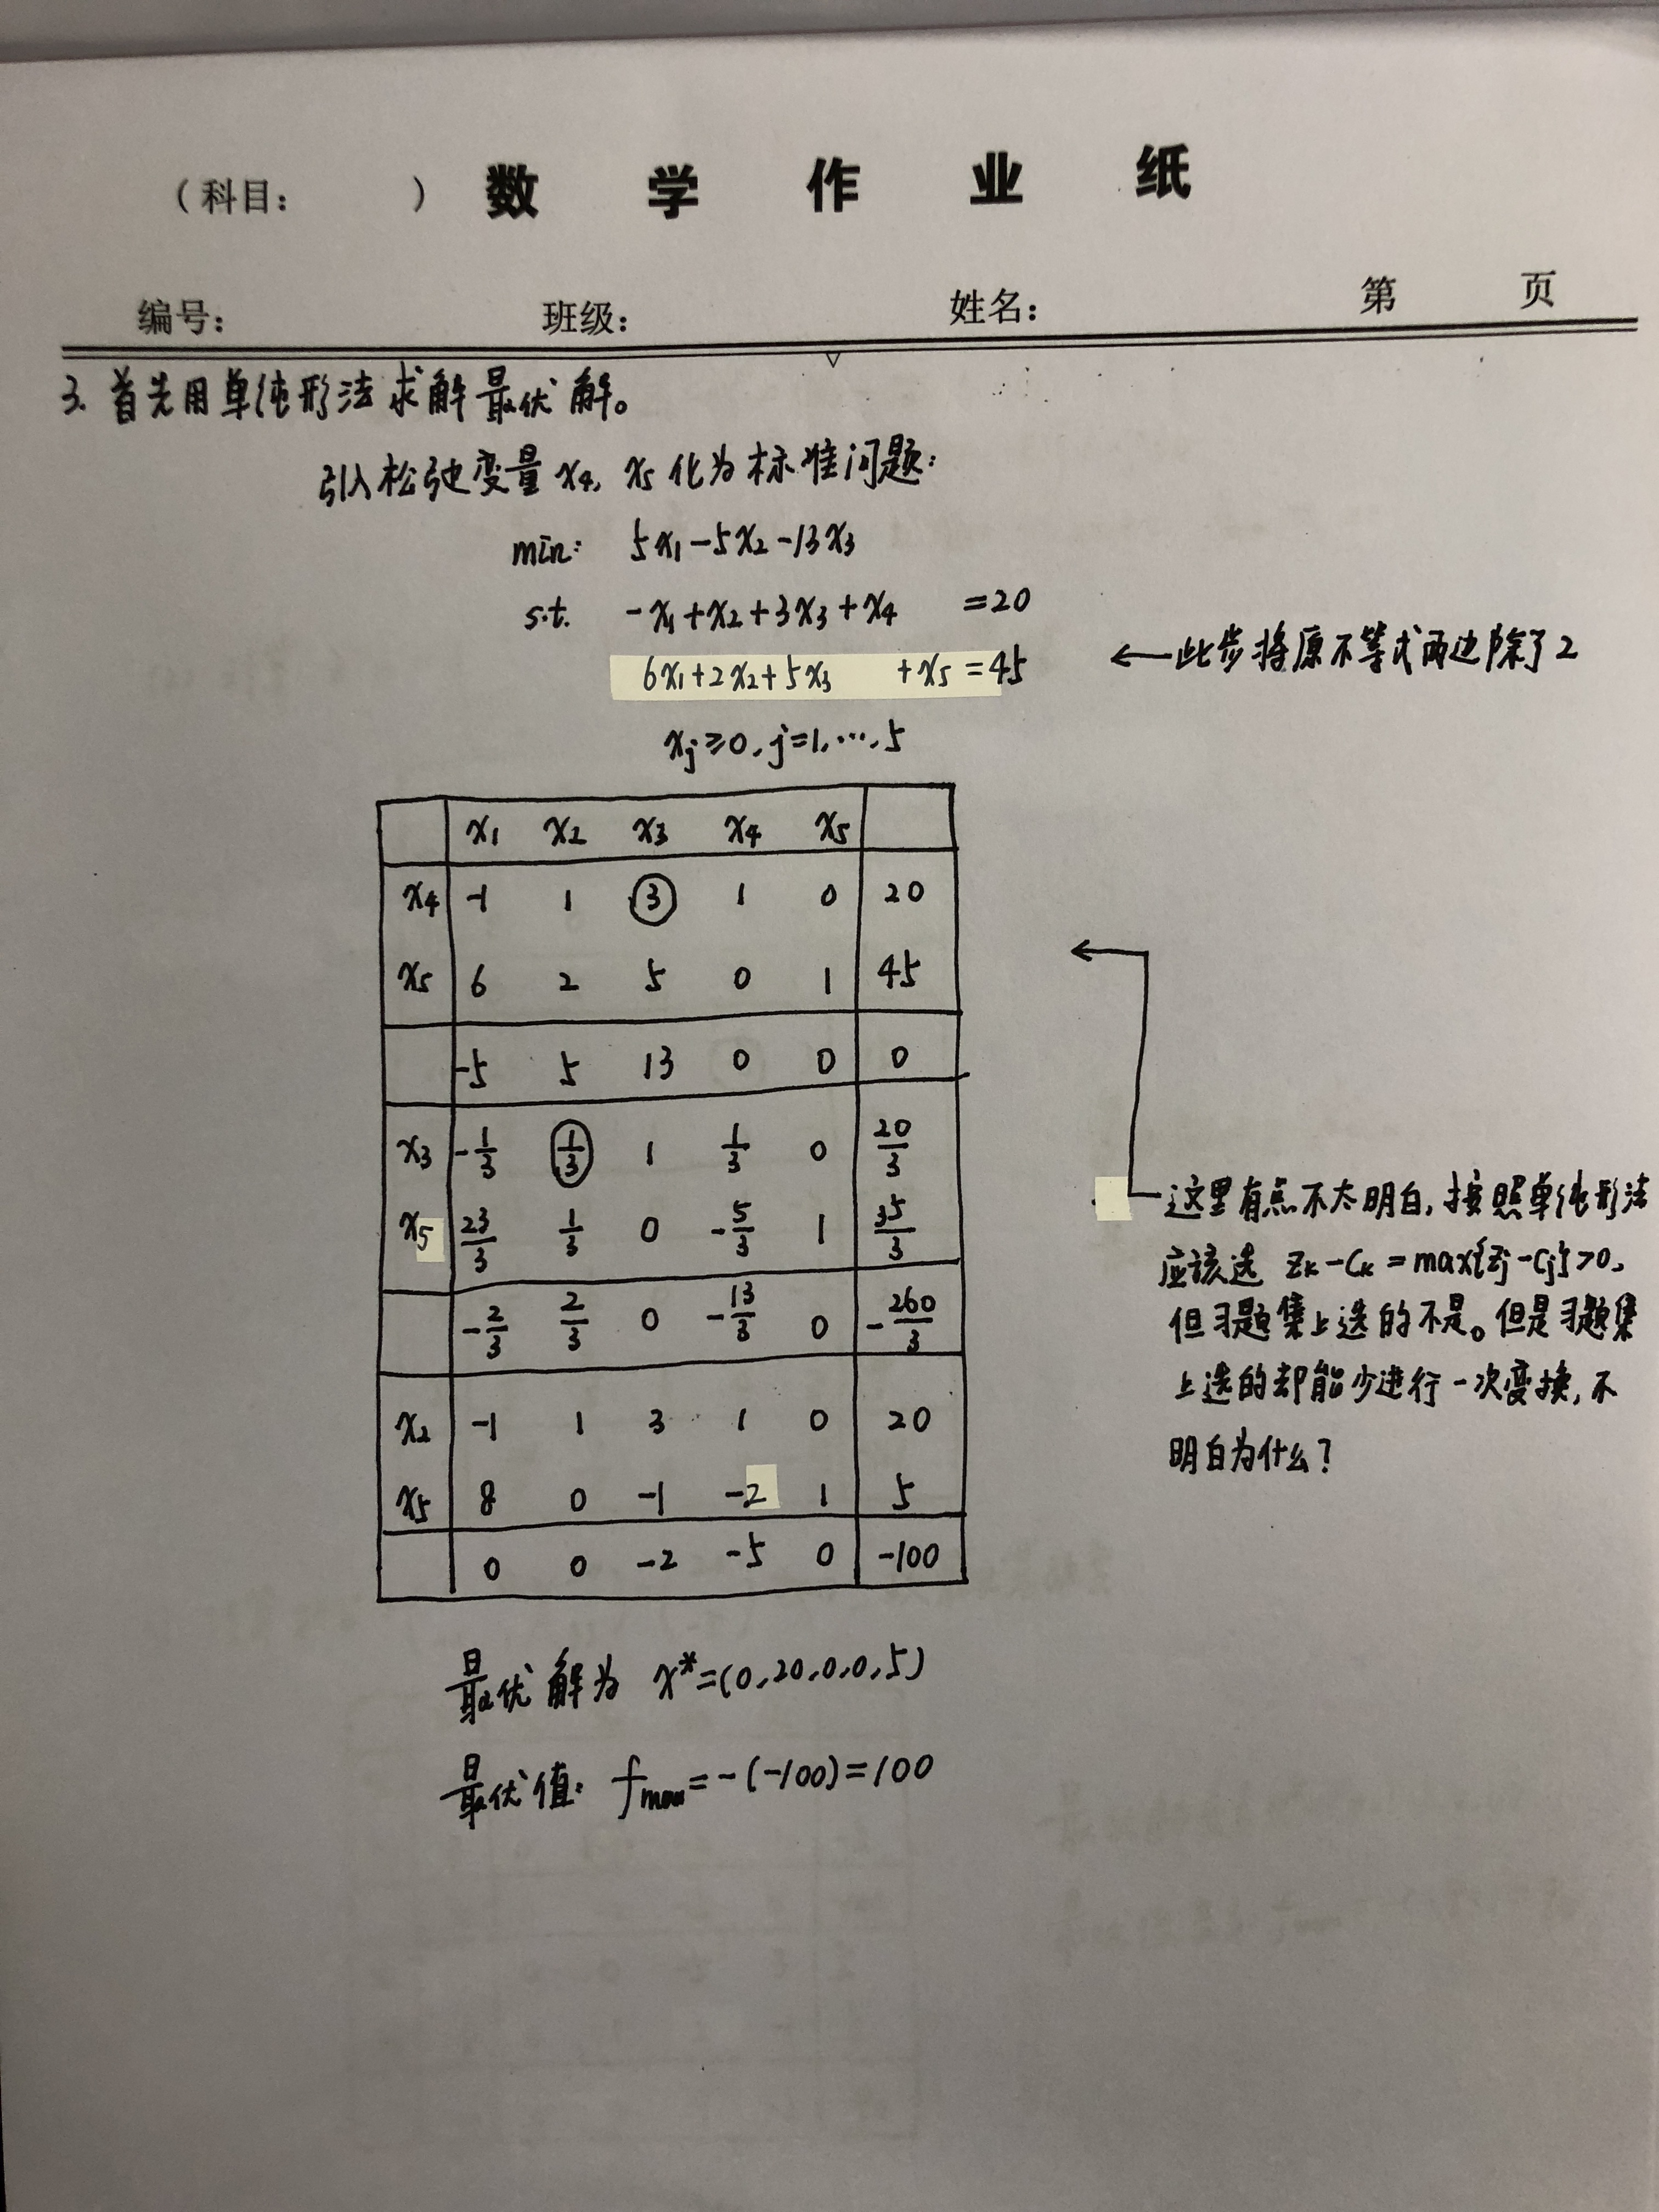 （科目：　　）数 学 作 业 纸
编号：　　班级：　　姓名：　　第　　页
3. 首先用单纯形法求解最优解。
引入松弛变量 x₄, x₅ 化为标准问题：
min: 5x₁-5x₂-13x₃
s.t. -x₁+x₂+3x₃+x₄ =20
6x₁+2x₂+5x₃ +x₅=45 ←此步将原不等式两边除了2
xⱼ≥0, j=1,…,5
x₁ x₂ x₃ x₄ x₅
x₄ -1 1 3 1 0 20
x₅ 6 2 5 0 1 45
-5 5 13 0 0 0
x₃ -1/3 1/3 1 1/3 0 20/3
x₅ 23/3 1/3 0 -5/3 1 35/3
-2/3 2/3 0 -13/3 0 -260/3
x₂ -1 1 3 1 0 20
x₅ 8 0 -1 -2 1 5
0 0 -2 -5 0 -100
这里有点不太明白，按照单纯形法
应该选 zₖ-cₖ=max{zⱼ-cⱼ}>0,
但习题集上选的不是。但是习题集
上选的却能少进行一次变换，不
明白为什么？
最优解为 x*=(0,20,0,0,5)
最优值：fmax=-(-100)=100